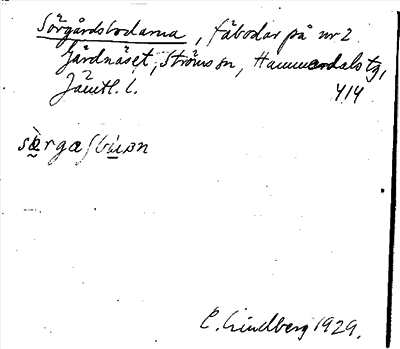 Sörgårdsbodarna, fäbodar på nr 2
Gårdnäset, Ströms sn, Hammerdals tg,
Jämtl. l. 414
sæ̀rgaʃbùɩɒn
C. Lindberg 1929.